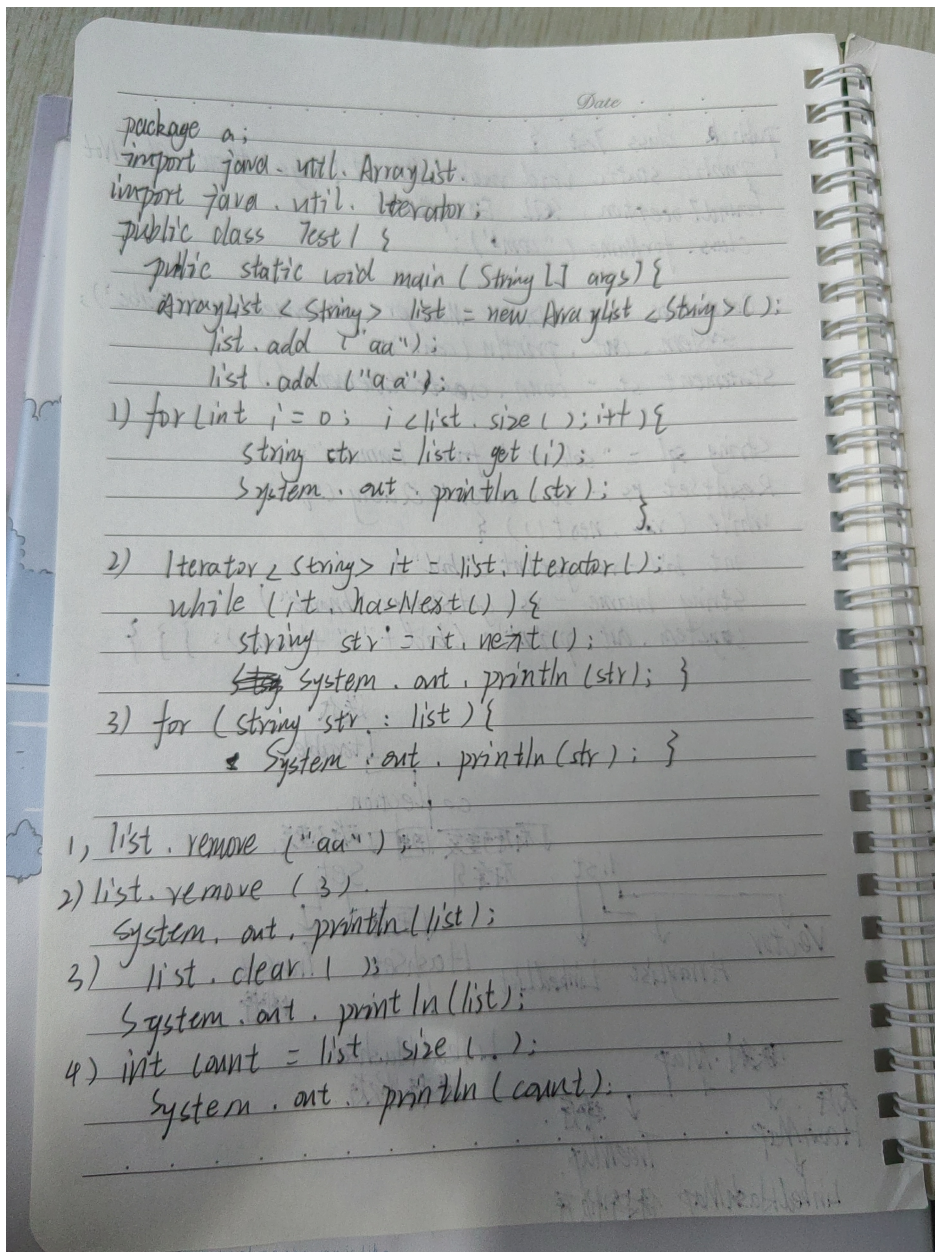 Date
package a;
import java.util.ArrayList.
import java.util.Iterator;
public class Test1 {
public static void main (String [] args) {
ArrayList < String > list = new ArrayList < String > ();
list.add ("aa");
list.add ("aa");
1) for (int i = 0; i < list.size (); i++) {
string str = list.get (i);
System.out.println (str);
}.
2) Iterator < string > it = list.iterator ();
while (it.hasNext ()) {
string str = it.next ();
System.out.println (str); }
3) for (string str : list) {
System.out.println (str); }
1, list.remove ("aa")
2) list.remove (3).
System.out.println (list);
3) list.clear ();
System.out.println (list);
4) int count = list size (.);
System.out.println (count);